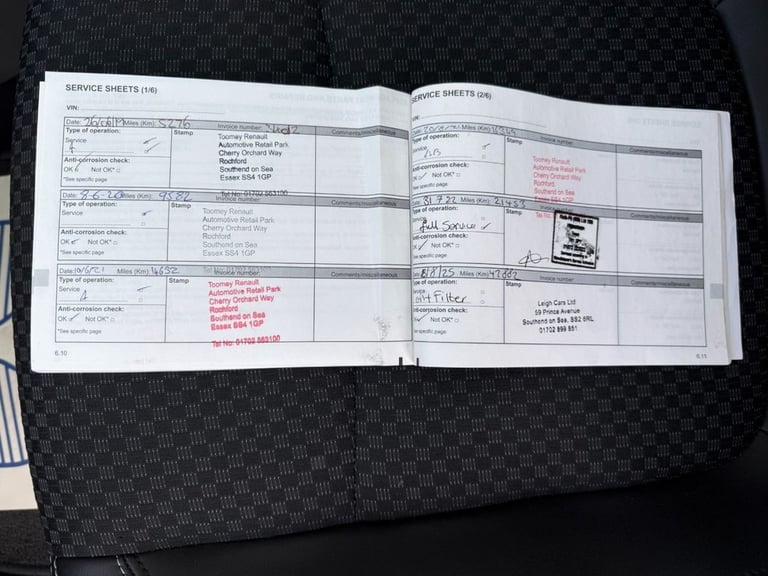 SERVICE SHEETS (1/6)
VIN:
Date: Miles (Km): 5276 Invoice number:
Type of operation: Stamp Comments/miscellaneous
Service
Anti-corrosion check:
OK Not OK*
*See specific page
Toomey Renault
Automotive Retail Park
Cherry Orchard Way
Rochford
Southend on Sea
Essex SS4 1GP
Tel No: 01702 563100
Date: 8-6-20 Miles (Km): 9582
Type of operation: Stamp
Service
Anti-corrosion check:
OK Not OK*
*See specific page
Toomey Renault
Automotive Retail Park
Cherry Orchard Way
Rochford
Southend on Sea
Essex SS4 1GP
Date: 10/6/21 Miles (Km): 14652 Invoice number: Comments/miscellaneous
Type of operation: Stamp
Service
A
Anti-corrosion check:
OK Not OK*
*See specific page
Toomey Renault
Automotive Retail Park
Cherry Orchard Way
Rochford
Southend on Sea
Essex SS4 1GP
Tel No: 01702 563100
6.10
SERVICE SHEETS (2/6)
VIN:
Miles (Km) Invoice number:
Type of operation: Stamp Comments/miscellaneous
Service
Anti-corrosion check:
OK Not OK*
*See specific page
Toomey Renault
Automotive Retail Park
Cherry Orchard Way
Rochford
Southend on Sea
Essex SS4 1GP
Tel No:
Miles (Km) 21453
Type of operation: Stamp
Full Service
corrosion check:
Not OK*
see specific page
8/8/25 Miles (Km) Invoice number: Comments/miscellaneous
Type of operation: Stamp
Service
Oil+ Filter
corrosion check:
Not OK*
specific page
Leigh Cars Ltd
59 Prince Avenue
Southend on Sea, SS2 6RL
01702 899 851
6.11